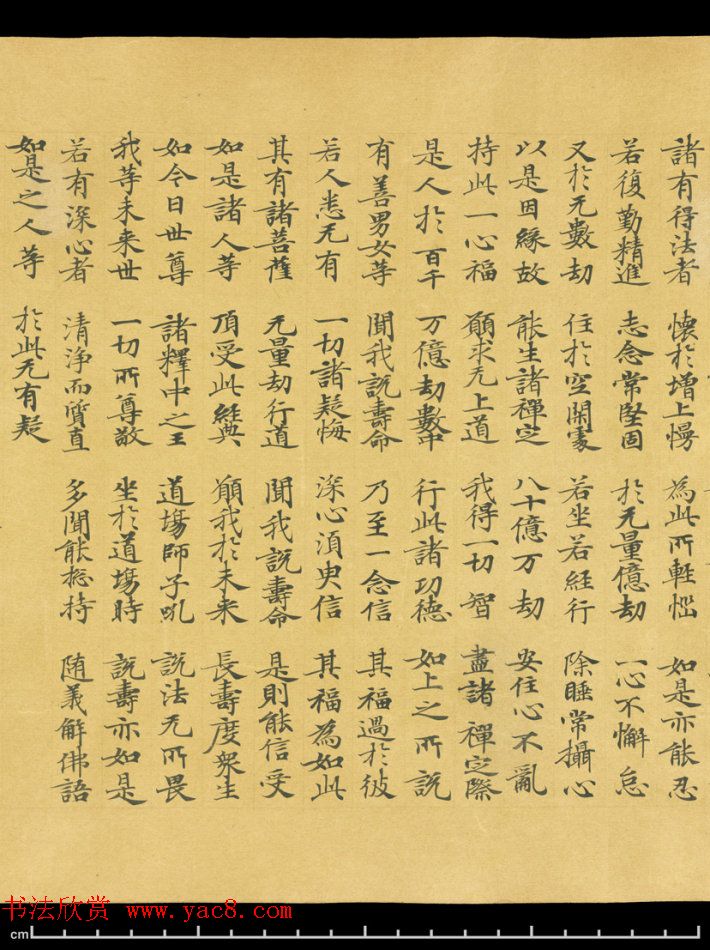 諸有得法者 懷於增上慢 為此所輕惱 如是亦能忍
若復勤精進 志念常堅固 於无量億劫 一心不懈怠
又於无數劫 住於空閑處 若坐若經行 除睡常攝心
以是因緣故 能生諸禪定 八十億万劫 安住心不亂
持此一心福 願求无上道 我得一切智 盡諸禪定際
是人於百千 万億劫數中 行此諸功德 如上之所說
有善男女等 聞我說壽命 乃至一念信 其福過於彼
若人悉无有 一切諸疑悔 深心須臾信 其福為如此
其有諸菩薩 无量劫行道 聞我說壽命 是則能信受
如是諸人等 頂受此經典 願我於未来 長壽度衆生
如今日世尊 諸釋中之王 道場師子吼 說法无所畏
我等未来世 一切所尊敬 坐於道場時 說壽亦如是
若有深心者 清淨而質直 多聞能揔持 随義解佛語
如是之人等 於此无有疑
书法欣赏 www.yac8.com
cm